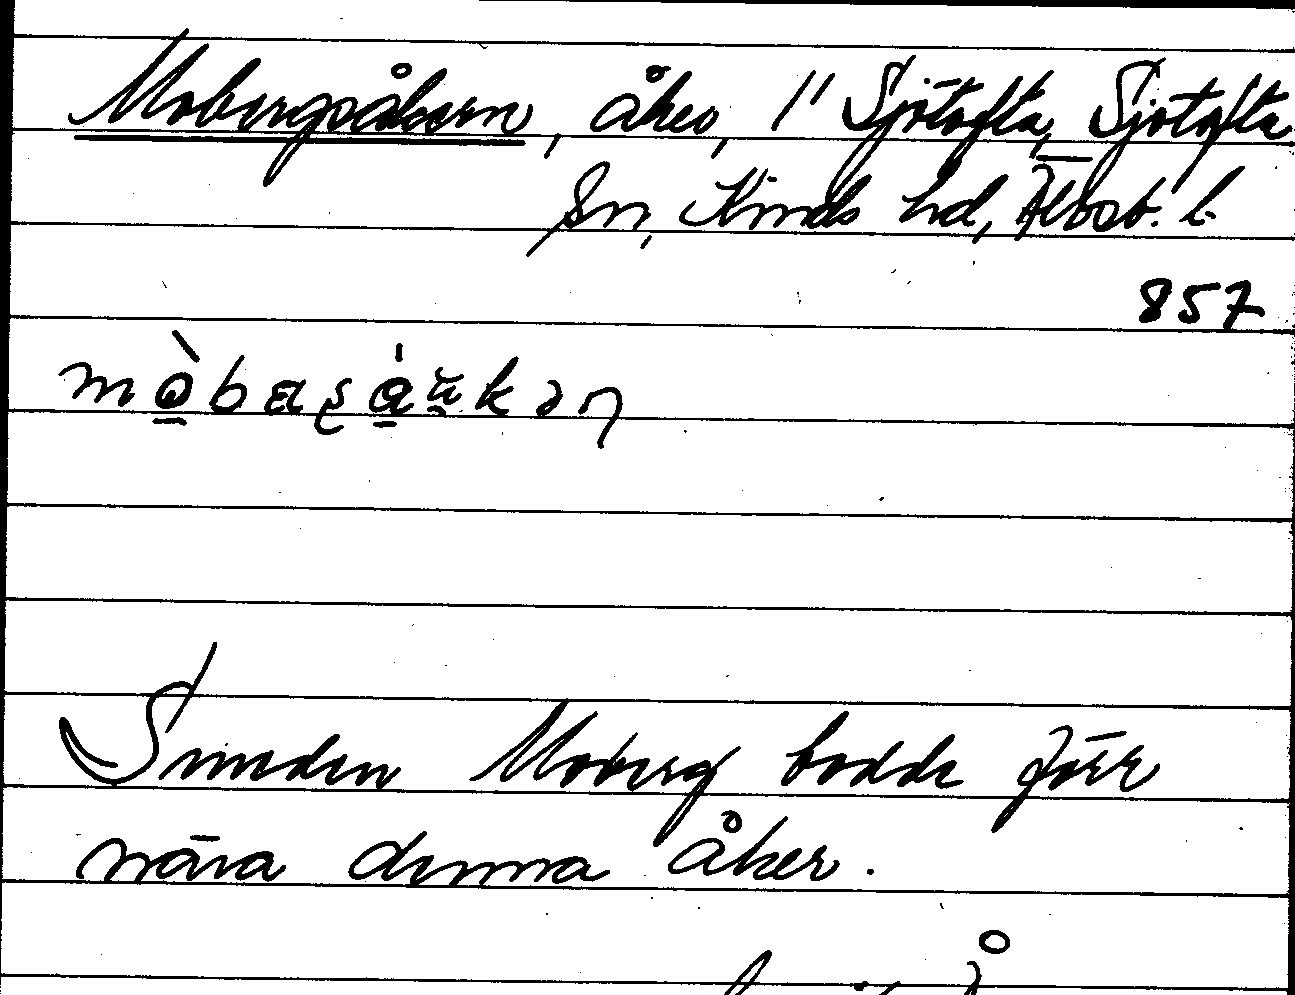 Mobergsåkern, åker, 1'' Sjötofta, Sjötofta
Sn, Kinds hd, Älvsb. l.
857
Smeden Moberg bodde förr
nära denna åker.